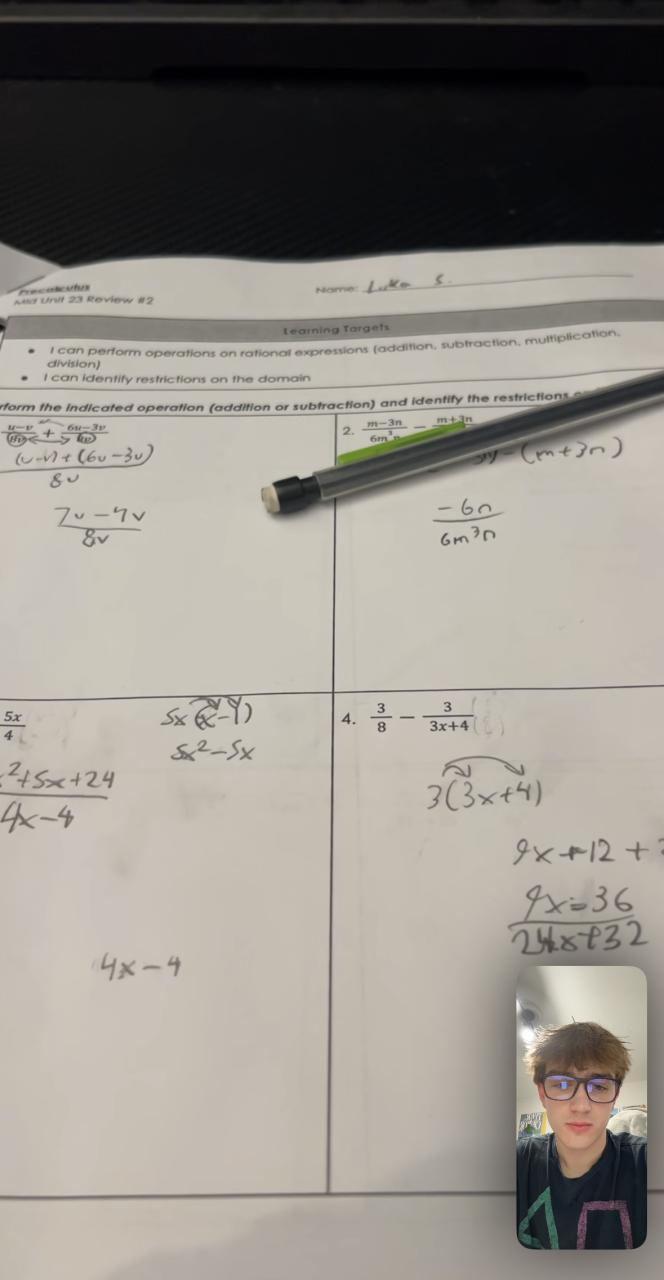 Precalculus
Mid Unit 23 Review #2
Name: Luka S.
Learning Targets
• I can perform operations on rational expressions (addition, subtraction, multiplication,
division)
• I can identify restrictions on the domain
rform the indicated operation (addition or subtraction) and identify the restrictions
u-v + 6u-3v
8v 8v
(u-v)+(6u-3v)
8v
7u-4v
8v
2. m-3n - m+3n
6m³n
-(m+3n)
-6n
6m³n
5x
4
5x(x-1)
5x²-5x
²+5x+24
4x-4
4x-4
4. 3/8 - 3/3x+4
3(3x+4)
9x+12+
9x=36
24x+32